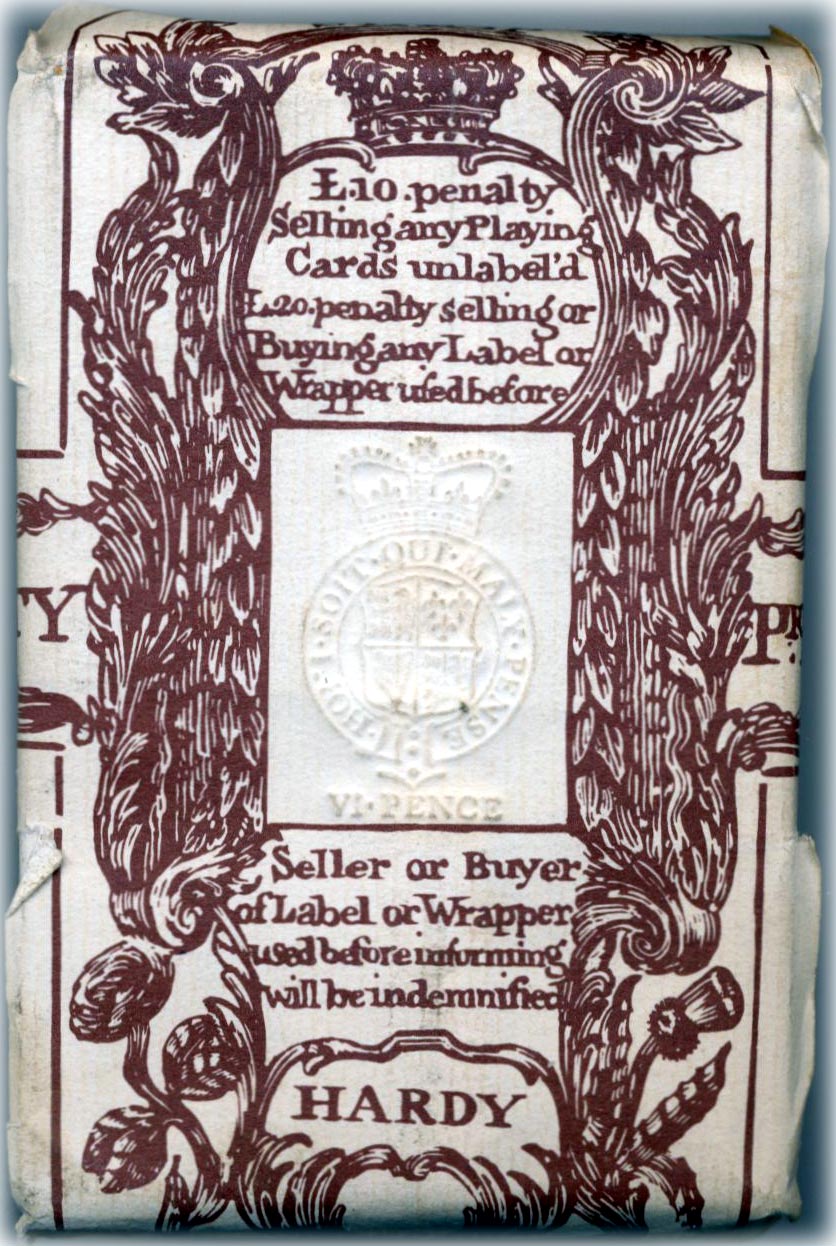 £.10.penalty
Selling any Playing
Cards unlabel'd
£.20.penalty selling or
Buying any Label or
Wrapper used before
HONI·SOIT·QUI·MAL·Y·PENSE
TY
PR
VI·PENCE
Seller or Buyer
of Label or Wrapper
used before informing
will be indemnified
HARDY